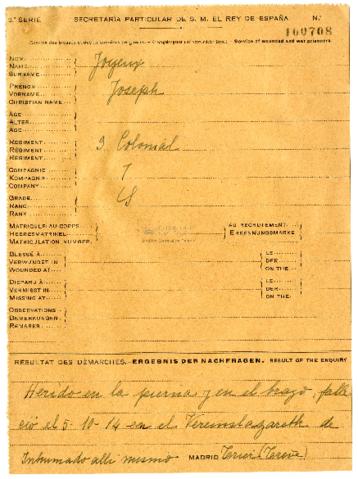 2.ª SERIE SECRETARÍA PARTICULAR DE S. M. EL REY DE ESPAÑA N.º
160708
Service of wounded and war prisoners.
NOM
NAME
SURNAME
Joyeux
PRENOM
VORNAME
CHRISTIAN NAME
Joseph
AGE
ALTER
AGE
REGIMENT
REGIMENT
REGIMENT
3. Colonial
COMPAGNIE
KOMPAGNIE
COMPANY
7
GRADE
RANG
RANK
S
MATRICULE AU CORPS
HEERESMATRIKEL
MATRICULATION NUMBER
AU RECRUTEMENT
ERKENNUNGSMARKE
BLESSÉ À
VERWUNDET IN
WOUNDED AT
LE
DER
ON THE
DISPARU À
VERMISST IN
MISSING AT
LE
DER
ON THE
OBSERVATIONS
BEMERKUNGEN
REMARKS
RESULTAT DES DÉMARCHES. ERGEBNIS DER NACHFRAGEN. RESULT OF THE ENQUIRY
Herido en la pierna y en el brazo, falle
ció el 5-10-14 en el Vereinslazareth de
Inhumado alli mismo MADRID Trier (Treves)